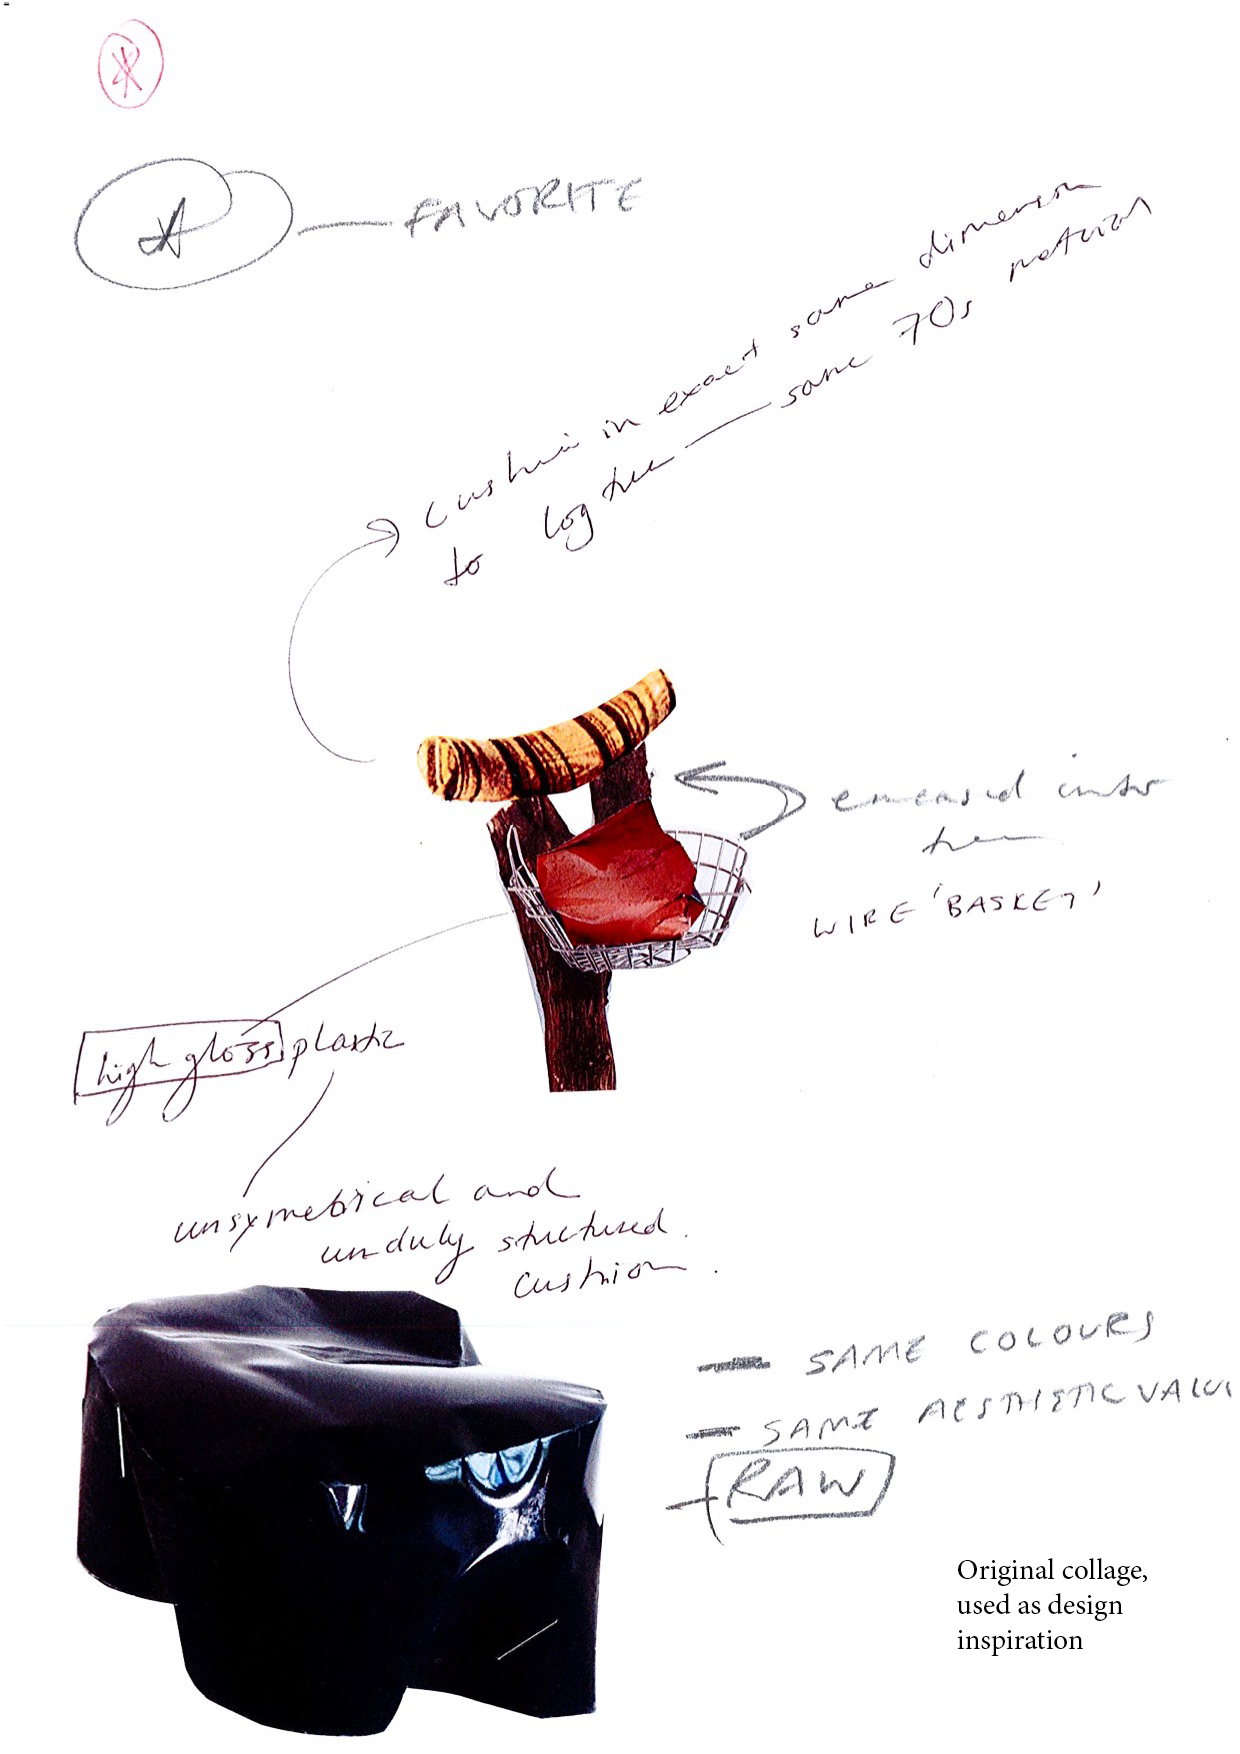 FAVORITE
cushion in exact same dimension
to log tree — same 70s material
encased into
tree
WIRE 'BASKET'
high gloss plastic
unsymetrical and
unduly structured
cushion.
— SAME COLOURS
— SAME AESTHETIC VALU
— RAW
Original collage,
used as design
inspiration